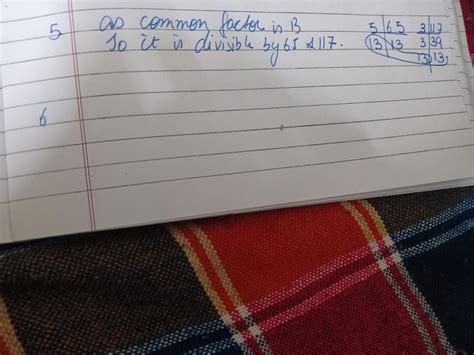 5 as common factor is 13 5 65 3 117
So it is divisible by 65 & 117. 13 13 3 39
13 13
6